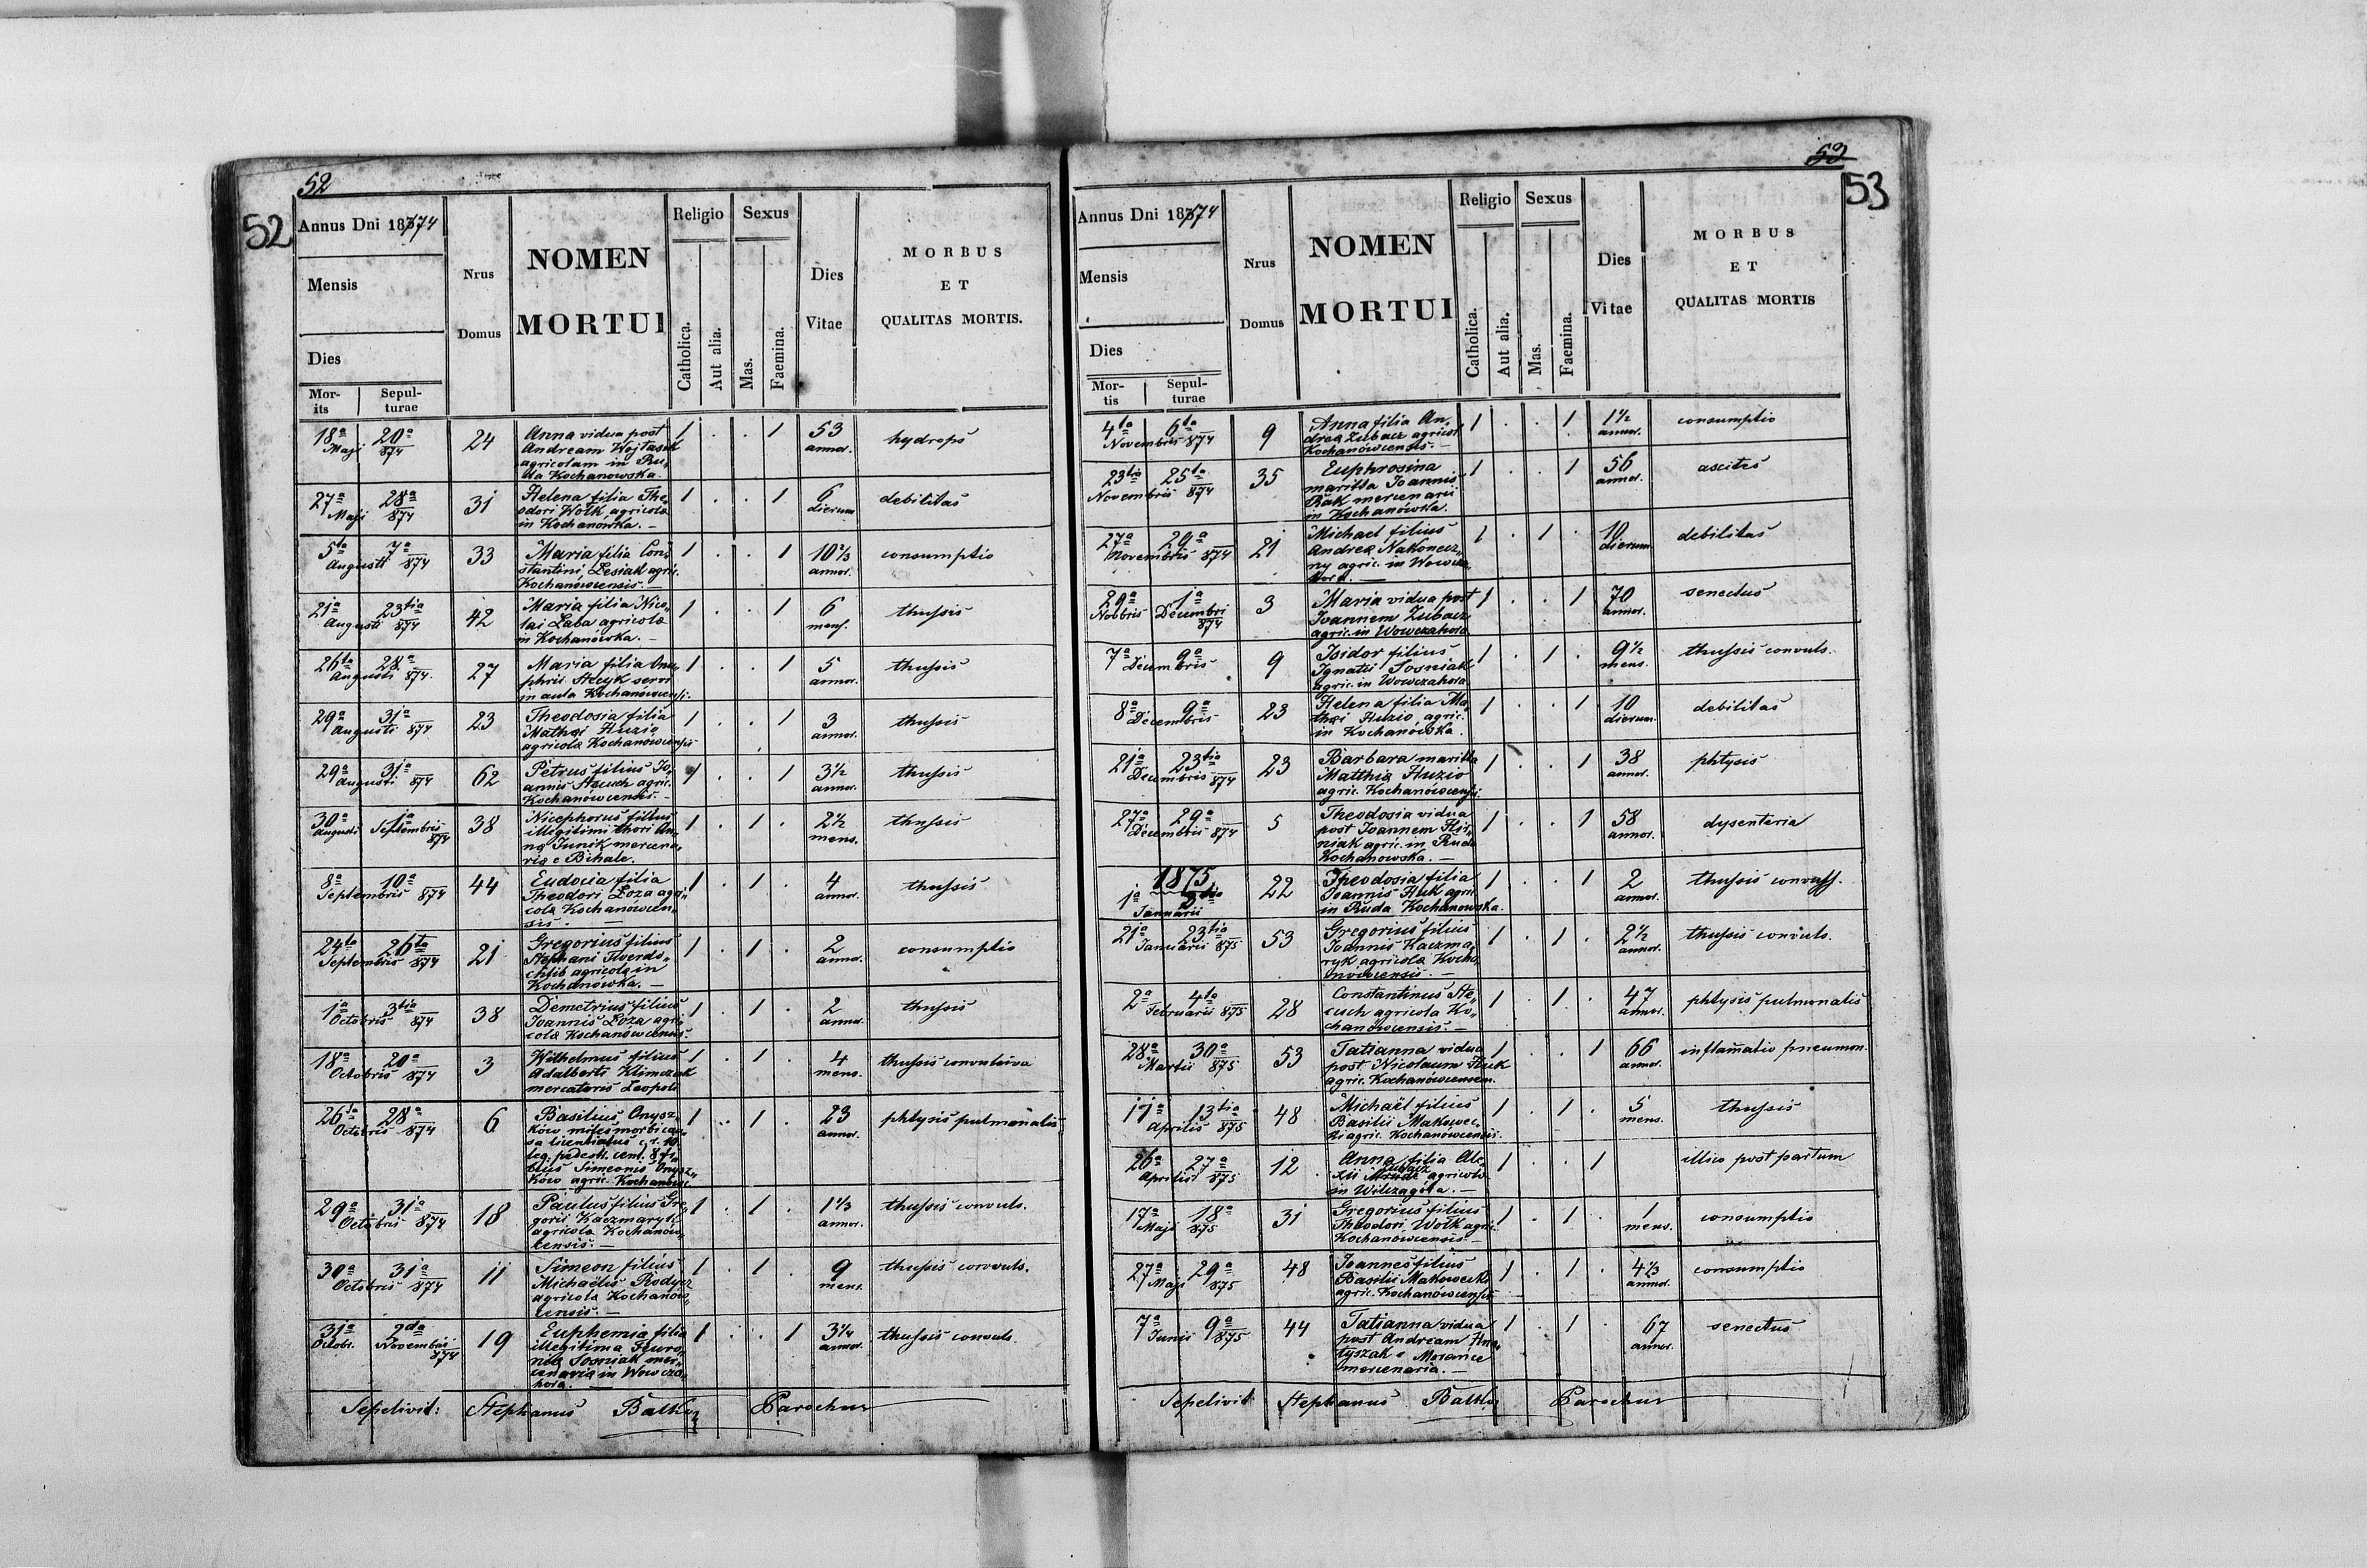 52
52
Annus Dni 1874
Mensis
Dies
Mor-
its
Sepul-
turae
Nrus
Domus
NOMEN
MORTUI
Religio
Catholica.
Aut alia.
Sexus
Mas.
Faemina.
Dies
Vitae
MORBUS
ET
QUALITAS MORTIS.
18ª 20ª
Maji 874
24
Anna vidua post
Andream Wojtasik
agricolam in Ru„
da Kochanowska.
1 . . 1
53
annor.
hydrops
27ª 28ª
Maji 874
31
Helena filia The„
odori Wołk agricolæ
in Kochanowka. —
1 . . 1
6
dierum
debilitas
5ta 7ª
Augusti 874
33
Maria filia Con„
stantini Lesiak agric.
Kochanówcensis.
1 . . 1
10⅔
annor.
consumptio
21ª 23tia
Augusti 874
42
Maria filia Nico„
lai Laba agricolæ
in Kochanówka. —
1 . . 1
6
mens.
thussis
26ta 28ª
Augusti 874.
27
Maria filia Onu„
phrii Stecyk servi
in aula Kochanówcensi.
1 . . 1
5
annor.
thussis
29ª 31ª
Augusti 874
23
Theodosia filia
Mathæi Huzio
agricolæ Kochanówcensis
1 . . 1
3
annor.
thussis
29ª 31ª
Augusti 874
62
Petrus filius Jo„
annis Stecuch agric.
Kochanówcensis. —
1 . . 1
3½
annor.
thussis
30ª 1ª
Augusti Septembris
874
38
Nicephorus filius
illegitimi thori An„
næ Junik mercena„
riæ e Bihale.
1 . 1 .
2½
mens.
thussis
8ª 10ª
Septembris 874
44
Eudocia filia
Theodori Łoza agri„
colæ Kochanówcen„
sis.
1 . 1 .
4
annor.
thussis
24ta 26ta
Septembris 874
21
Gregorius filius
Stephani Twerdo„
chlib agricolæ in
Kochanówka. —
1 . 1 .
2
annor.
consumptio
1ª 3tia
Octobris 874
38
Demetrius filius
Joannis Łoza agri„
colæ Kochanówcensis.
1 . 1 .
2
annor.
thussis
18ª 20ª
Octobris 874
3
Wilhelmus filius
Adalberti Klimczak
mercatoris Leopoli
1 . 1 .
4
mens.
thussis convulsiva
26ta 28ª
Octobris 874
6
Basilius Onysz„
ków miles morbi cau„
sa licentiatus c. r. 10
leg. pedestr. cent. 8 fi„
lius Simeonis Onysz„
ków agric. Kochanówc.
1 . 1 .
23
annor.
phtysis pulmonalis
29ª 31ª
Octobris 874
18
Paulus filius Gre„
gorii Kaczmaryk
agricolæ Kochanów„
censis. —
1 . 1 .
1⅓
annor.
thussis convuls.
30ª 31ª
Octobris 874
11
Simeon filius
Michaëlis Rodycz
agricolæ Kochanów„
censis. —
1 . 1 .
9
mens.
thussis convuls.
31ª 2da
Octobr. Novembris
874
19
Euphemia filia
illegitima
Sosniak mer„
cenariæ in Wowcza„
hora. —
1 . . 1
3¼
annor.
thussis convuls.
Sepelivit: Stephanus Batko Parochus
53
53
Annus Dni 1874
Mensis
Dies
Mor-
tis
Sepul-
turae
Nrus
Domus
NOMEN
MORTUI
Religio
Catholica.
Aut alia.
Sexus
Mas.
Faemina.
Dies
Vitae
MORBUS
ET
QUALITAS MORTIS
4ta 6ta
Novembris 874
9
Anna filia An„
dreæ Zubacz agricol.
Kochanówcensis. —
1 . . 1
1½
annor.
consumptio
23tia 25ta
Novembris 874
35
Euphrosina
maritta Joannis
Rak mercenarii
in Kochanówka.
1 . . 1
56
annor.
ascites
27ª 29ª
Novembris 874
21
Michael filius
Andreæ Nakonecz„
ny agric. in Wowcza„
hora. —
1 . 1 .
10
dierum
debilitas
29ª 1ª
Nobbris Decembri
874
3
Maria vidua post
Joannem Zubacz
agric. in Wowczahora
1 . . 1
70
annor.
senectus
7ª 9ª
Decembris
9
Isidor filius
Ignatii Sosniak
agric. in Wowczahora
1 . 1 .
9½
mens.
thussis convuls.
8ª 9ª
Decembris
23
Helena filia Ma„
thæi Huzio agric.
in Kochanówka.
1 . . 1
10
dierum
debilitas
21ª 23tia
Decembris 874
23
Barbara maritta
Matthiæ Huzio
agric. Kochanówcensis.
1 . . 1
38
annor.
phtysis
27ª 29ª
Decembris 874
5
Theodosia vidua
post Joannem
agric. in Ruda
Kochanowska. —
1 . . 1
58
annor.
dysenteria
1875
1ª 3tia
Januarii
22
Theodosia filia
Joannis Huk agric.
in Ruda Kochanowska.
1 . . 1
2
annor.
thussis convuls.
21ª 23tia
Januarii 875
53
Gregorius filius
Joannis Kaczma„
ryk agricolæ Kocha„
nówcensis. —
1 . 1 .
2½
annor.
thussis convuls.
2ª 4ta
Februarii 875
28
Constantinus Ste„
cuch agricola Ko„
chanówcensis. —
1 . 1 .
47
annor.
phtysis pulmonalis
28ª 30ª
Martii 875
53
Tatianna vidua
post Nicolaum Huk
agric. Kochanówcensem.
1 . . 1
66
annor.
inflam̄atio pneumon.
11ª 13tia
Aprilis 875
48
Michaël filius
Basilii Makowec„
ki agric. Kochanówcensis.
1 . 1 .
5
mens.
thussis
26ª 27ª
Aprilis 875
12
Anna filia Ale„
xii Zubacz agricolæ
in Wilczagóra. —
1 . . 1
illico post partum
17ª 18ª
Maji 875
31
Gregorius filius
Theodori Wołk agri.
Kochanówcensis —
1 . 1 .
1
mens.
consumptio
27ª 29ª
Maji 875
48
Joannes filius
Basilii Makowecki
agric. Kochanówcensis
1 . 1 .
4⅓
annor.
consumptio
7ª 9ª
Junii 875
44
Tatianna vidua
post Andream Hna„
tyszak e Moranice
mercenaria. —
1 . 1 .
67
annor.
senectus
Sepelivit Stephanus Batko Parochus